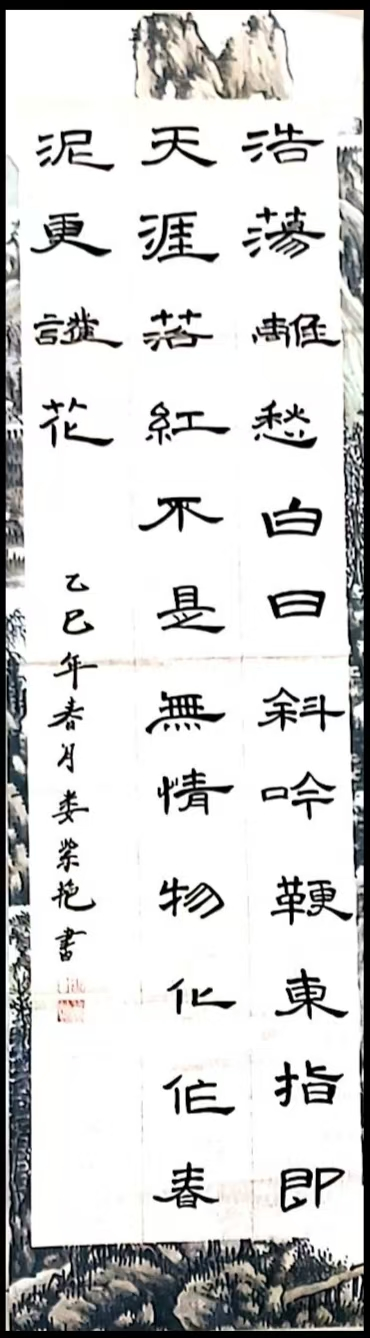 浩蕩離愁白日斜吟鞭東指即
天涯落紅不是無情物化作春
泥更護花
乙巳年春月娄艳書